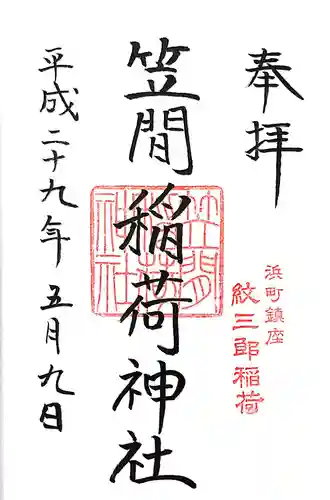 奉拝
浜町鎮座
紋三郎稲荷
笠間稲荷神社
笠間稲荷神社
平成二十九年五月九日